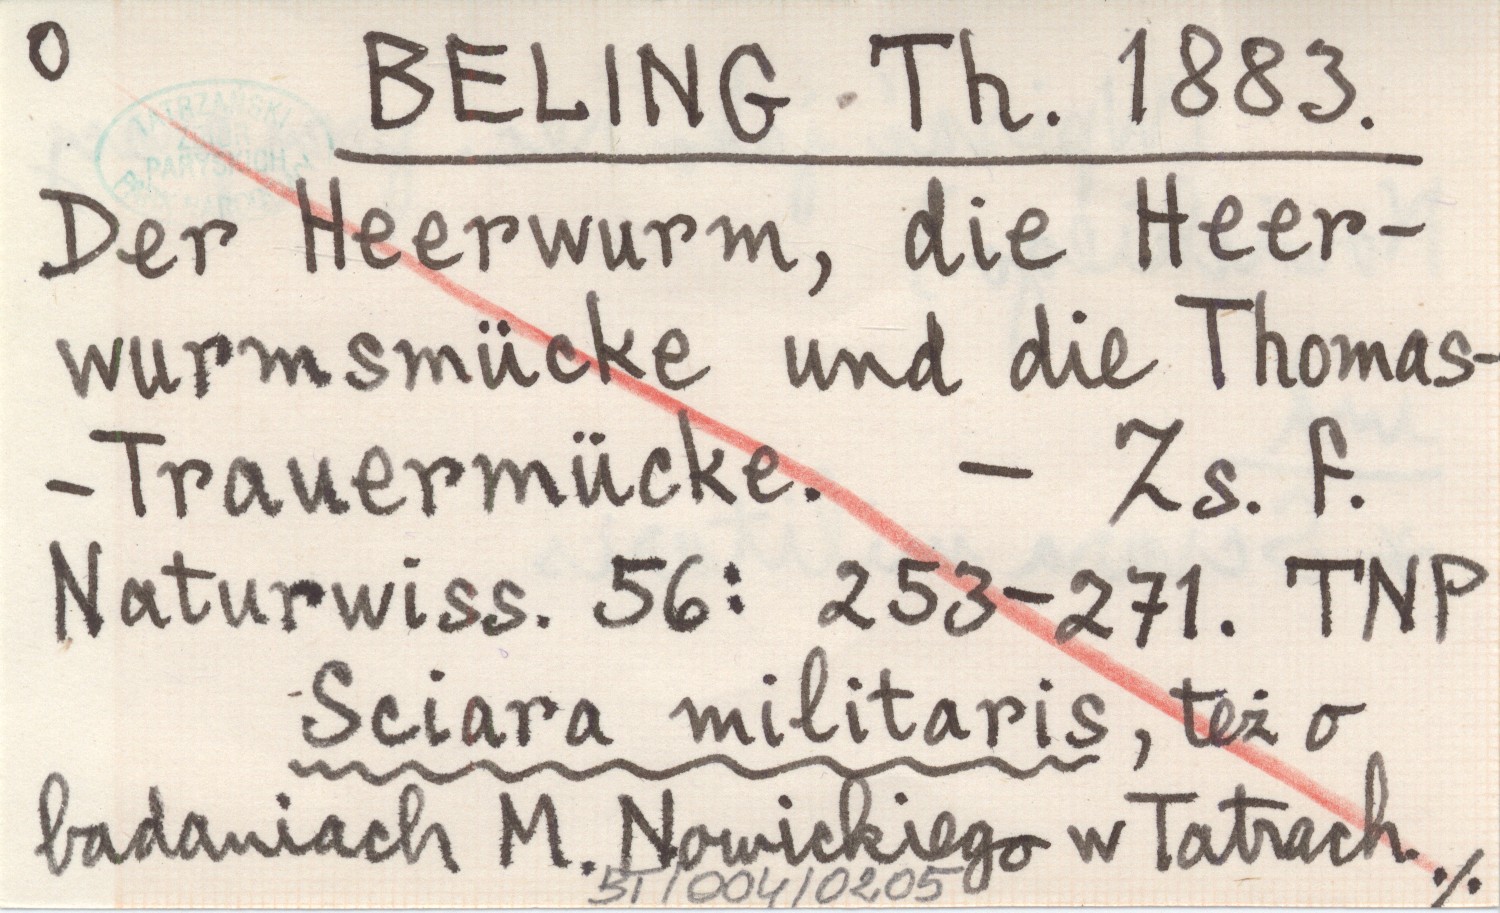 O
BELING Th. 1883.
TATRZAŃSKI
PARYSKICH
Der Heerwurm, die Heer-
wurmsmücke und die Thomas-
-Trauermücke. — Zs. f.
Naturwiss. 56: 253-271. TNP
Sciara militaris, też o
badaniach M. Nowickiego w Tatrach.
5T/004/0205
./.